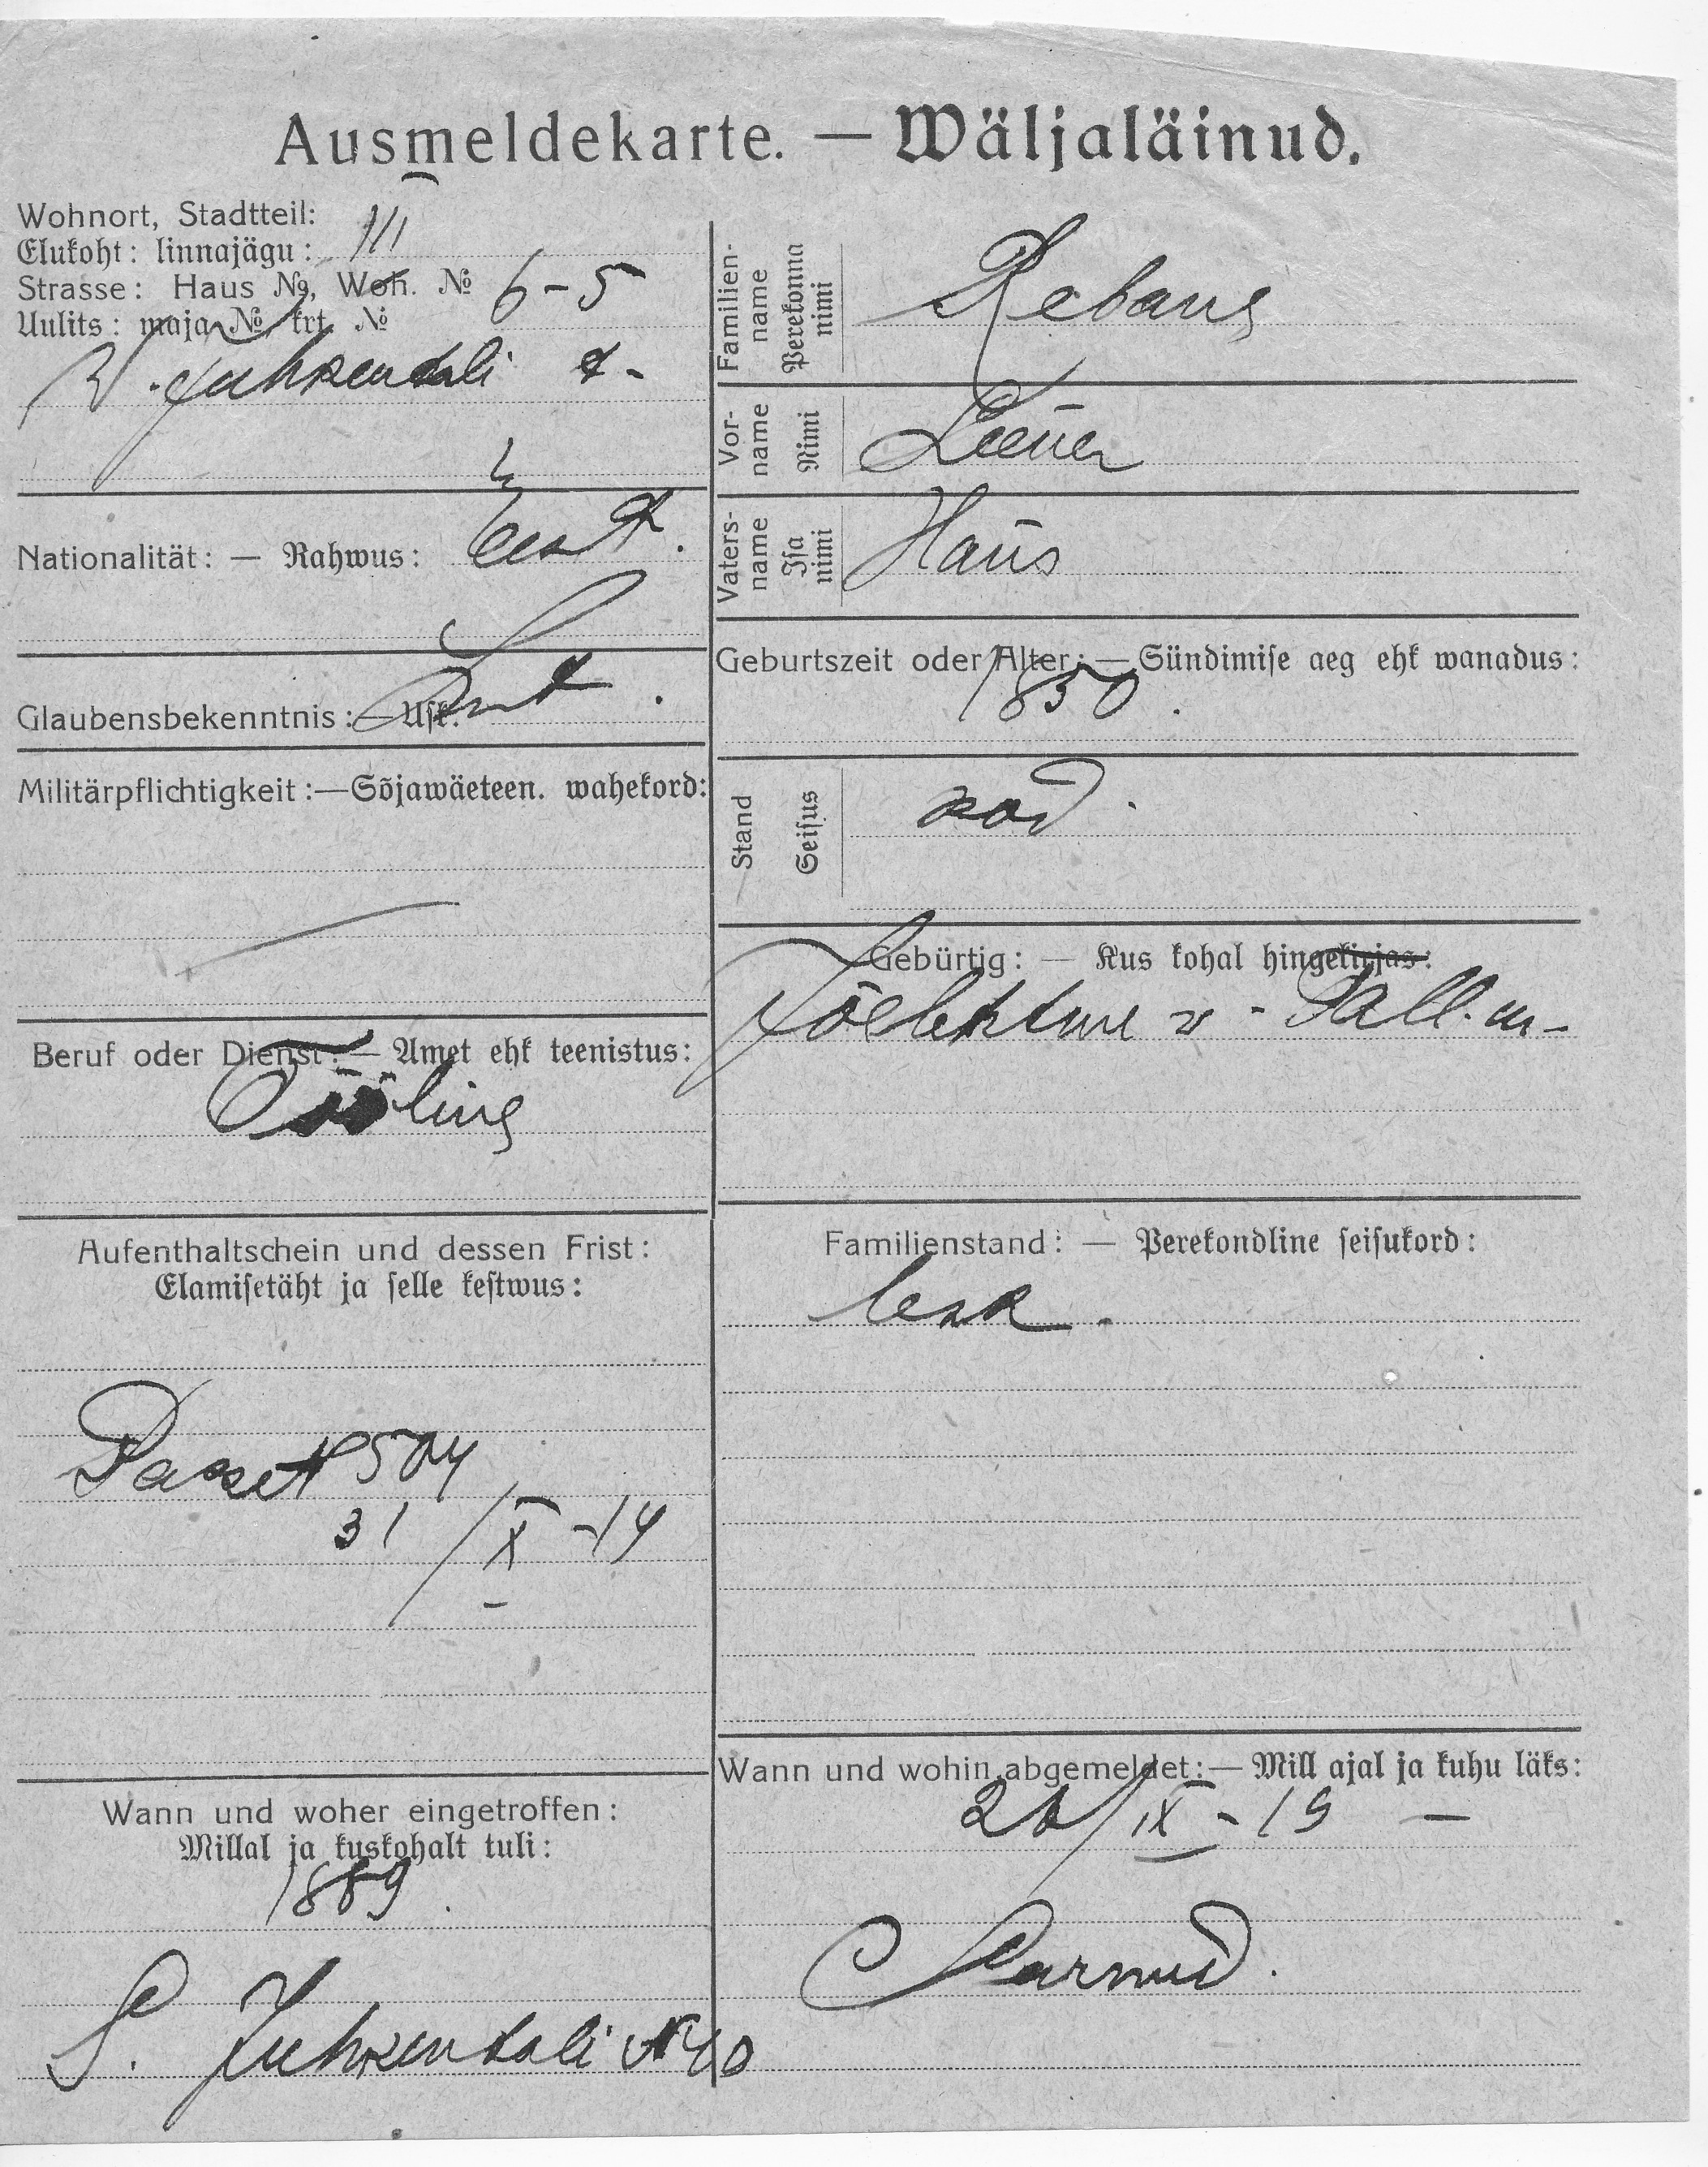 Ausmeldekarte. — Wäljaläinud.
Wohnort, Stadtteil:
Elukoht: linnajägu: III
Strasse: Haus №, Woh. № 6-5
Uulits: maja №, krt. №
W. Juhkentali t.
Nationalität: — Rahwus: Eest.
Glaubensbekenntnis: — Usk: Lut.
Militärpflichtigkeit: — Sõjawäeteen. wahekord:
Beruf oder Dienst: — Amet ehk teenistus:
Tööline
Aufenthaltschein und dessen Frist:
Elamisetäht ja selle kestwus:
Passet 504
31/X-14
Wann und woher eingetroffen:
Millal ja kuskohalt tuli:
1889.
S. Juhkentali № 40
Familienname Perekonna nimi Rebane
Vorname Nimi Leena
Vatersname Isa nimi Hans
Geburtszeit oder Alter: — Sündimise aeg ehk wanadus:
1850.
Stand Seisus kod.
Gebürtig: — Kus kohal hingekirjas:
Familienstand: — Perekondline seisukord:
lesk.
Wann und wohin abgemeldet: — Mill ajal ja kuhu läks:
26/IX-19 —
Surnud.